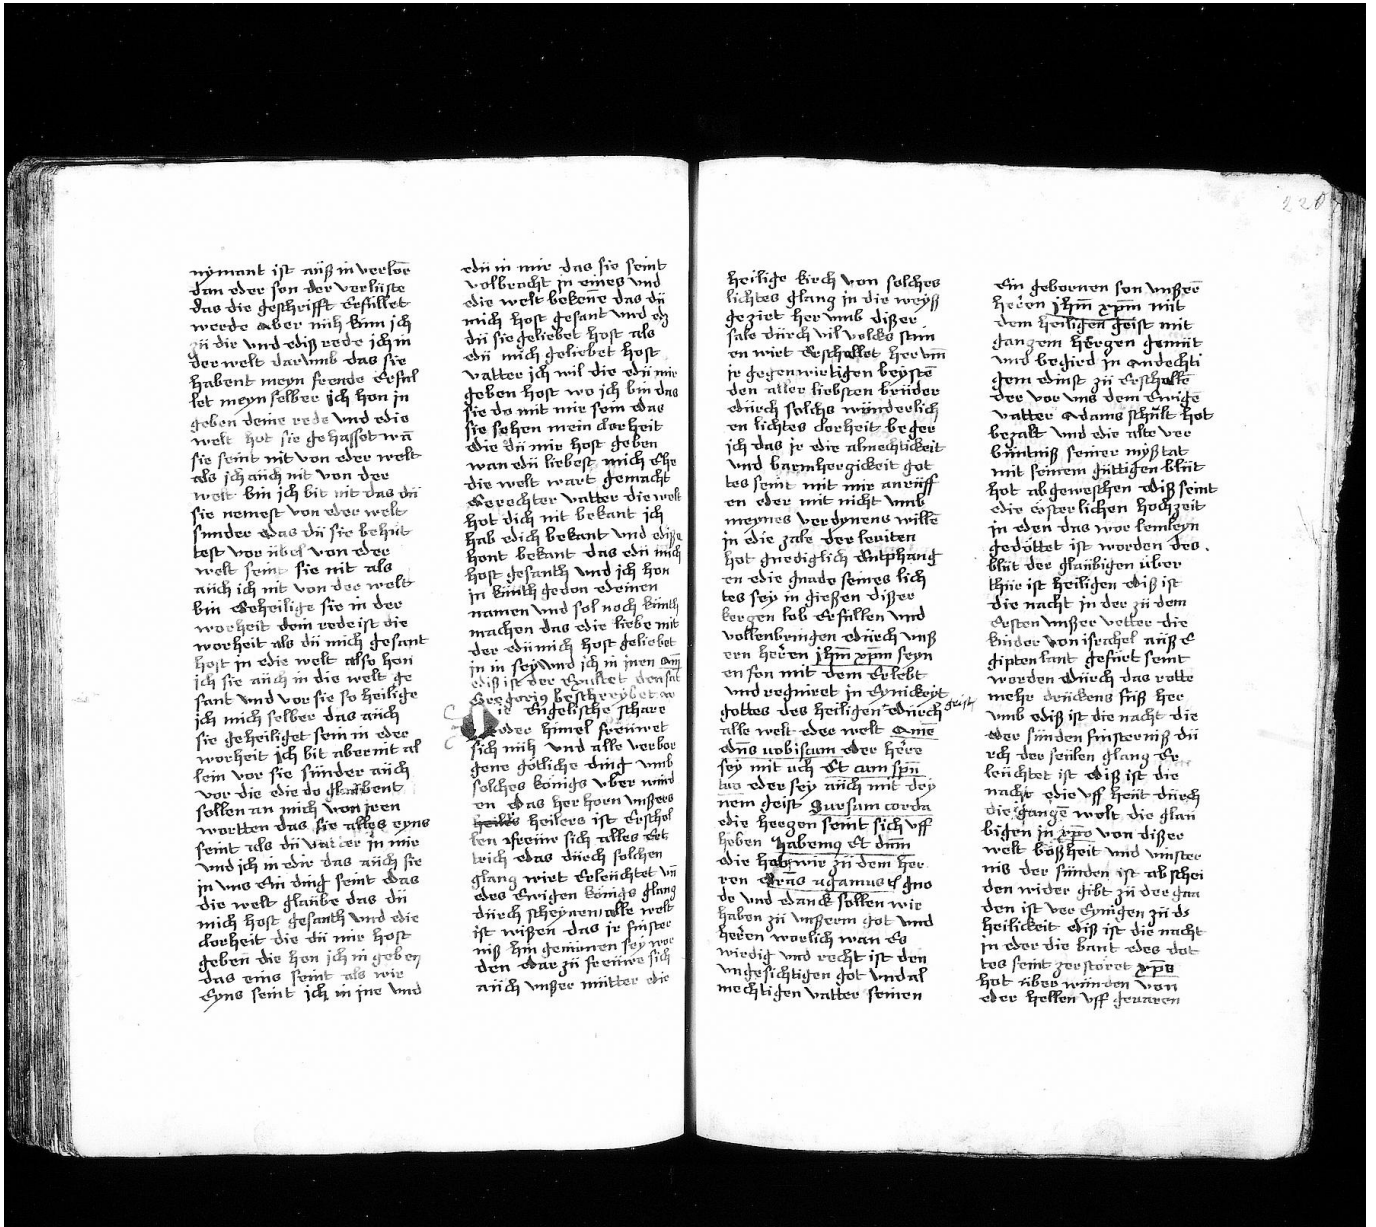 nymant ist auß in verlorē
dan eder son der verlüste
das die geschrifft Erfüllet
werde aber nüh küm ich
zü dir und ediß rede ich in
der welt darümb das sie
habent meyn freüde Erfül
let meyn selber ich hon in
geben deine rede und edie
welt hot sie gehasset wā
sie seint nit von eder welt
als ich aüch nit von der
welt bin ich bit nit das dü
sie nemest von eder welt
sunder edas dü sie behüt
test vor übel von eder
welt seint sie nit als
aüch ich nit von der welt
bin Geheilige sie in der
worheit dein rede ist die
worheit als dü mich gesant
host in edie welt also hon
ich sie aüch in die welt ge
sant und vor sie so heilige
ich mich selber das aüch
sie geheiliget sein in eder
worheit ich bit aber nit al
lein vor sie sünder aüch
vor die edie do glaübent
sollen an mich von jren
wortten das sie alles eyns
seint als dü vatter in mir
und ich in edir das aüch sie
in uns Ein ding seint edas
die welt glaübe das dü
mich host gesanth und edie
clorheit die dü mir host
geben die hon ich in geben
das eins seint als wir
Eyns seint ich in jne und
edü in mir das sie seint
volbrocht in eines und
edie welt bekēne das dü
mich host gesant und edz
dü sie geliebet host als
edü mich geliebet host
vatter ich wil die edü mir
geben host wo ich bin das
sie do mit mir sein edas
sie sehen mein clorheit
edie dü mir host geben
wan edü liebest mich Ehe
die welt wart gemacht
Gerechter vatter die welt
hot dich nit bekant ich
hab edich bekant und ediße
hont bekant das edü mich
host gesanth und ich hon
in künth gedon edeinen
namen und sol noch künth
machen das edie liebe mit
der edü mich host geliebet
in in sey und ich in jnen am̄
ediß ist der Exultet den sāt
Gregorius beschreybet
Die Engelische schare
eder himel freüwet
sich nüh und alle verbor
gene götliche ding umb
solches königs uber wind
en edas her horn unßers
heiles heilers ist Erschol
len freüw sich alles Ert
trich edas dürch solchen
glantz wirt Erleüchtet vn̄
edes Ewigen königs glantz
dürch scheynen alle welt
ist wißen das jr finster
niß hin genümen sey wor
den edar zü freüwe sich
aüch unßer mütter edie
heilige kirch von solches
lichtes glantz in die weyß
gezirt her umb dißer
sale dürch vil volcks stim
en wirt Erschallet her um̄
jr gegenwirtigen beystē
den aller liebsten brüder
edürch solchs wünderlich
en lichtes clorheit beger
ich das jr edie almechtickeit
und barmhertzickeit got
tes seint mit mir anrüff
en eder mit nicht umb
meynes verdynens willē
in edie zale der leviten
hot gnediglich Entphang
en edie gnade seines lich
tes sey in gießen dißer
kertzen lob Erfüllen und
vollenbringen edürch unß
ern herēn jhm̄ xpm̄ seyn
en son mit dem Erlebt
und regniret in Eynickeyt
gottes des heiligen edürch geist
alle welt eder welt Amē
edn̄s vobiscum eder here
sey mit uch Et cum spū
tuo eder sey aüch mit dey
nem geist Sursum corda
edie hertzen seint sich uff
heben Habemq Et dūm
die hab wir zü dem her
ren Grās agamus gno
de und edanck sollen wir
haben zü unßerm got und
herēn worlich wan Es
wirdig und recht ist den
ungesichtigen got und al
mechtigen vatter seinen
Ein gebornen son unßerē
herēn jhm̄ xpm̄ mit
dem heiligen geist mit
gantzem hertzen gemüt
und begird in andechti
gem edinst zü Erschellē
der vor uns dem Ewigē
vatter Adams schült hot
bezalt und edie alte ver
büntniß seiner myßtat
mit seinem güttigen blüt
hot abgeweschen ediß seint
edie österlichen hochzeit
in eden das wor lemleyn
gedöttet ist worden des
blüt der glaübigen über
thür ist heiligen ediß ist
die nacht in der zü dem
Ersten unßer vetter die
kinder von israhel aüß E
gipten lant gefürt seint
worden edürch das rotte
mehr drückens füß her
umb ediß ist die nacht die
eder sünden finsterniß dü
rch der seülen glantz Er
leüchtet ist ediß ist die
nacht edie uff heüt dürch
die gantze welt die glaü
bigen in xpo von dißer
welt bößheit und vinster
nis der sünden ist abschei
den wider gibt zü der gna
den ist ver Eynigen zü ds
heilickeit ediß ist die nacht
in eder die bant edes dot
tes seint zerstoret xps
hot über wünden von
eder hellen uff gevaren